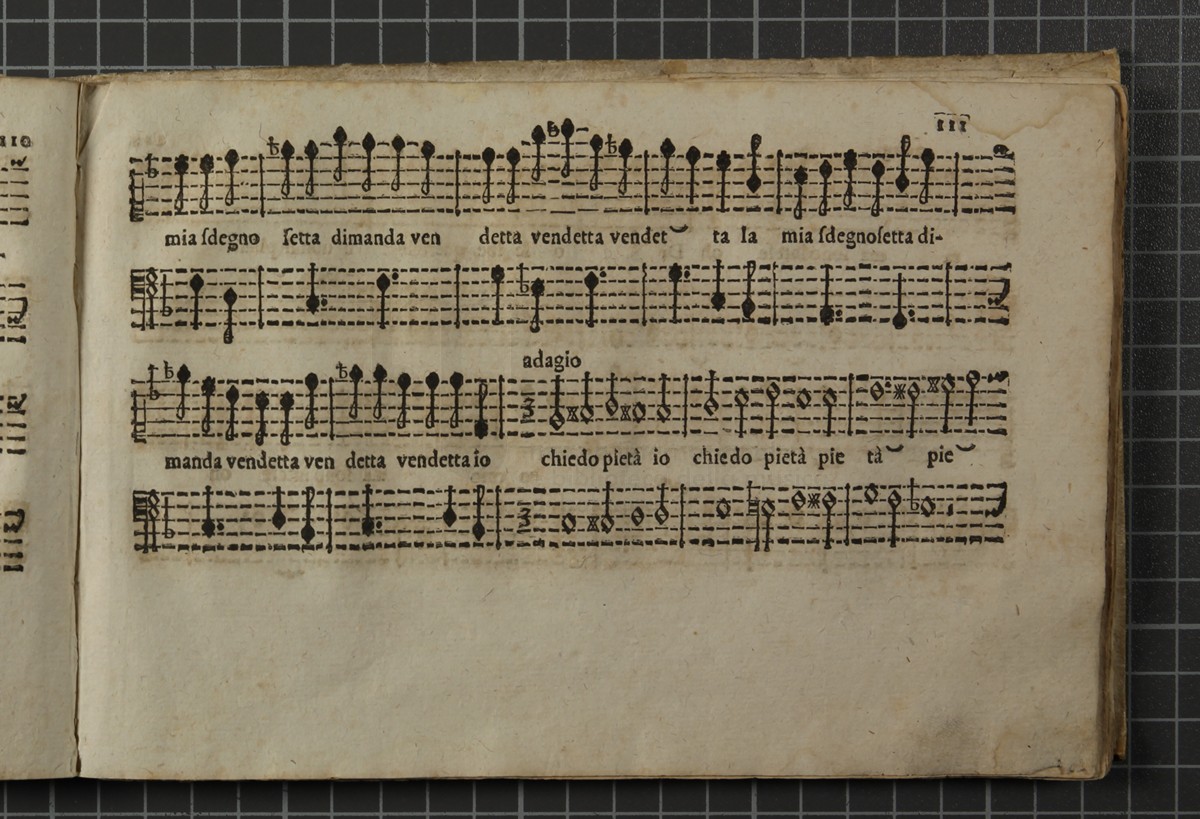 110
111
mia ſdegno ſetta dimanda ven detta vendetta vendet ta la mia ſdegnoſetta di-
adagio
manda vendetta ven detta vendetta io chiedo pietà io chiedo pietà pie tà pie